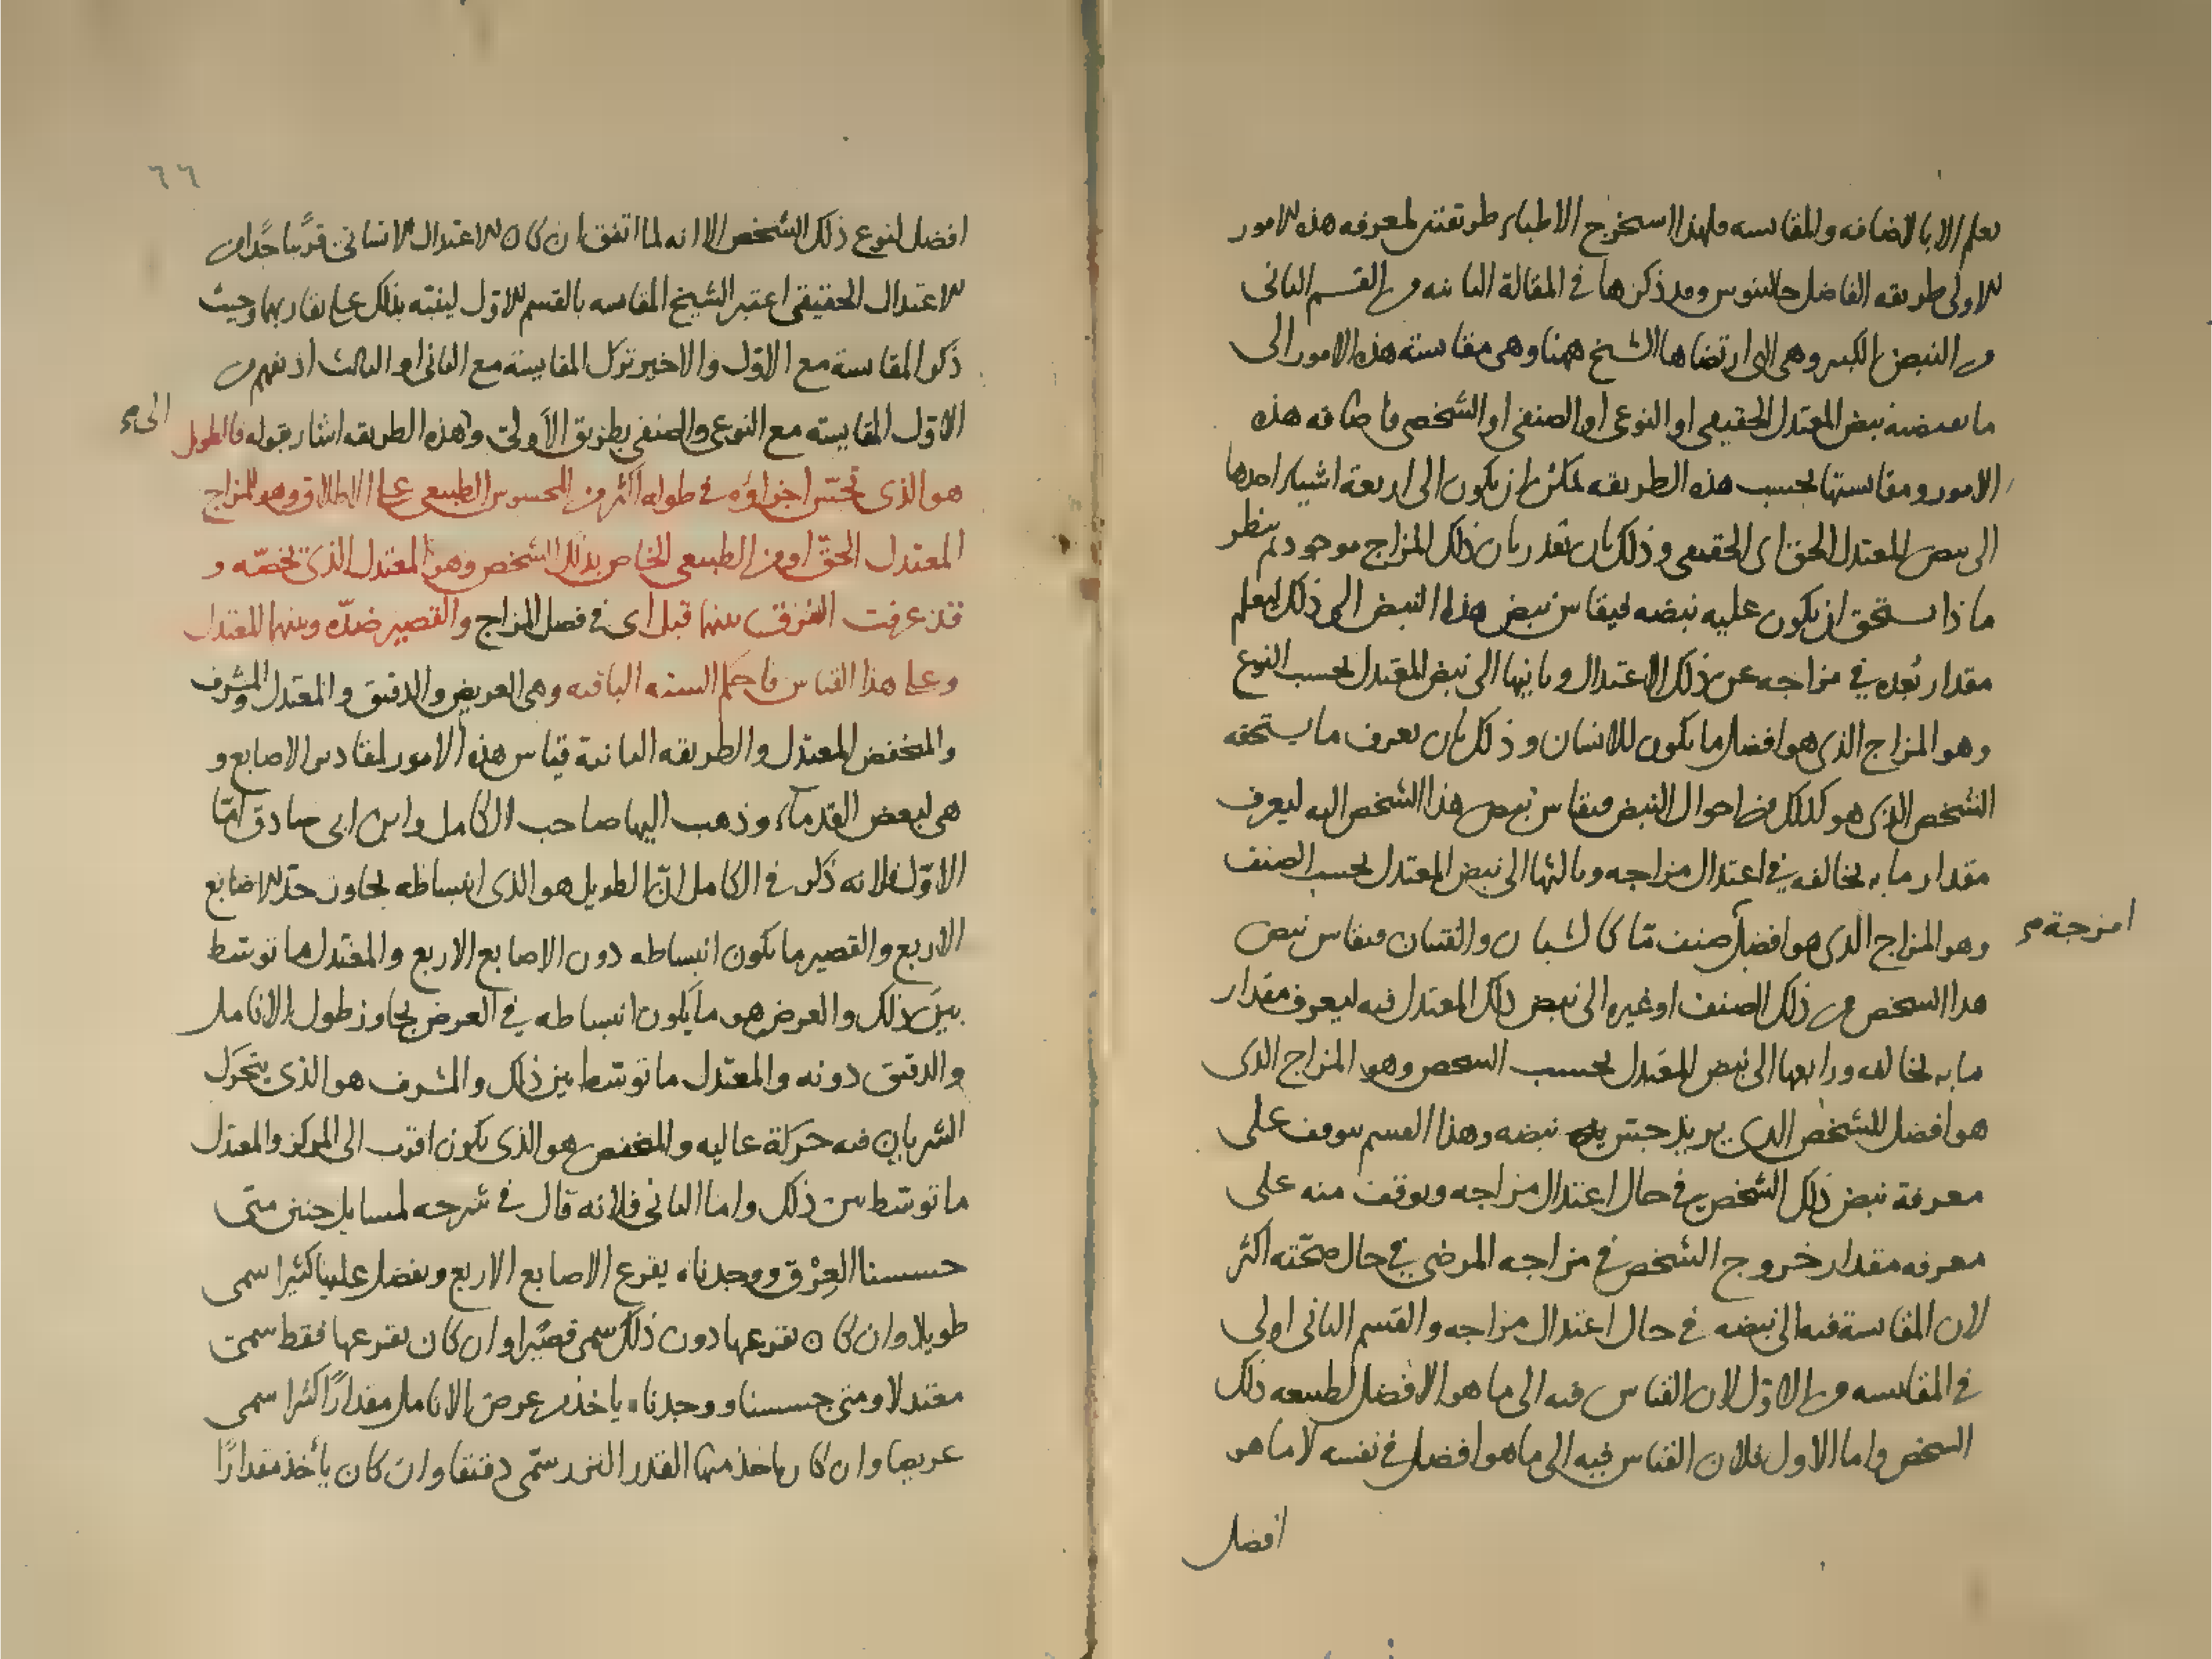 تعلم الا بالاضافه والمقايسه ولهذا استخرج الاطباء طريقتين لمعرفه هذه الامور
الاولى طريقه الفاضل جالينوس وقد ذكرها في المقالة الثانيه من القسم الثانى
من النبض الكبير وهى التى ارتضاها الشيخ ههنا وهى مقايسته هذه الامور الى
ما يقتضيه نبض المعتدل الحقيقى او النوعى او الصنفى او الشخصى فاضافه هذه
الامور ومقايستها بحسب هذه الطريقه يمكن ان يكون الى اربعة اشياء احدها
الى نبض المعتدل الحق اى الحقيقى وذلك بان نقدر بان ذلك المزاج موجود ثم ينظر
ما ذا يستحق ان يكون عليه نبضه فيقاس نبض هذا النبض الى ذلك ليعلم
مقدار بُعده في مزاجه عن ذلك الاعتدال وثانيها الى نبض المعتدل بحسب النوع
وهو المزاج الذى هو افضل ما يكون للانسان وذلك بان يعرف ما يستحقه
الشخص الذى هو كذلك من احوال النبض فيقاس نبض هذا الشخص اليه ليعرف
مقدار ما به يخالفه في اعتدال مزاجه وثالثها الى نبض المعتدل بحسب الصنف
وهو المزاج الذى هو افضل صنف ما كالشبان والفتيان فيقاس نبض
امزجة
هذا الشخص من ذلك الصنف او غيره الى نبض ذلك المعتدل فيه ليعرف مقدار
ما به يخالفه ورابعها الى نبض المعتدل بحسب الشخص وهو المزاج الذى
هو افضل للشخص الذى يريد جس نبضه وهذا القسم يتوقف على
معرفة نبض ذلك الشخص في حال اعتدال مزاجه ويوقف منه على
معرفه مقدار خروج الشخص في مزاجه المرضى في حال صحّته اكثر
لان المقايسة فيه الى نبضه في حال اعتدال مزاجه والقسم الثانى اولى
في المقايسه من الاوّل لان القياس فيه الى ما هو الافضل لطبيعه ذلك
الشخص واما الاول فلان القياس فيه الى ما هو افضل في نفسه لا ما هو
افضل
٦٦
افضل لنوع ذلك الشخص الا انه لما اتفق ان كان الاعتدال الانسانى قريبا جدا من
الاعتدال الحقيقى اعتبر الشيخ المقايسه بالقسم الاوّل لينبّه بذلك على تقاربهما وحيث
ذكر المقايسة مع الاوّل والاخير ترك المقايسة مع الثانى او الثالث اذ يفهم من
الاوّل المقايسته مع النوعى والصنفى بطريق الاَولى والى هذه الطريقه اشار بقوله فالطويل
هو الذى تحسّ اجزاؤه في طوله اكثر من المحسوس الطبيعى على الاطلاق وهو المزاج
المعتدل الحقّ او من الطبيعى الخاص بذلك الشخص وهو المعتدل الذى يخصّه و
قد عرفت الفرق بينهما قبل اى في فصل المزاج والقصير ضدّه وبينهما المعتدل
وعلى هذا القياس فاحكم السته الباقيه وهى العريض والدقيق والمعتدل والمشرف
والمنخفض المعتدل والطريقه الثانية قياس هذه الامور لمقادير الاصابع و
هى لبعض القدماء وذهب اليها صاحب الكامل وابن ابى صادق امّا
الاوّل فلانه ذكر في الكامل انّ الطويل هو الذى انبساطه يجاوز حدّ الاصابع
الاربع والقصير ما يكون انبساطه دون الاصابع الاربع والمعتدل ما توسّط
بين ذلك والعرض هو ما يكون انبساطه في العرض يجاوز طول الانامل
والدقيق دونه والمعتدل ما توسّط بين ذلك والمشرف هو الذى يتحرّك
الشريان فيه حركة عاليه والمنخفض هو الذى يكون اقرب الى المركز والمعتدل
ما توسّط بين ذلك واما الثانى فلانه قال في شرحه لمسايل حنين متى
حسسنا العِرْق ووجدناه يقرع الاصابع الاربع ويفضل عليها كثيرا سمى
طويلا وان كان يقرعها دون ذلك سمى قصيرا وان كان يقرعها فقط سمى
معتدلا ومتى جسسنا ووجدناه ياخذ من عرض الانامل مقدارًا كثيرا سمى
عريضا وان كان ياخذ منها القدر النزر سمّى دقيقا وان كان يأخذ مقدارًا